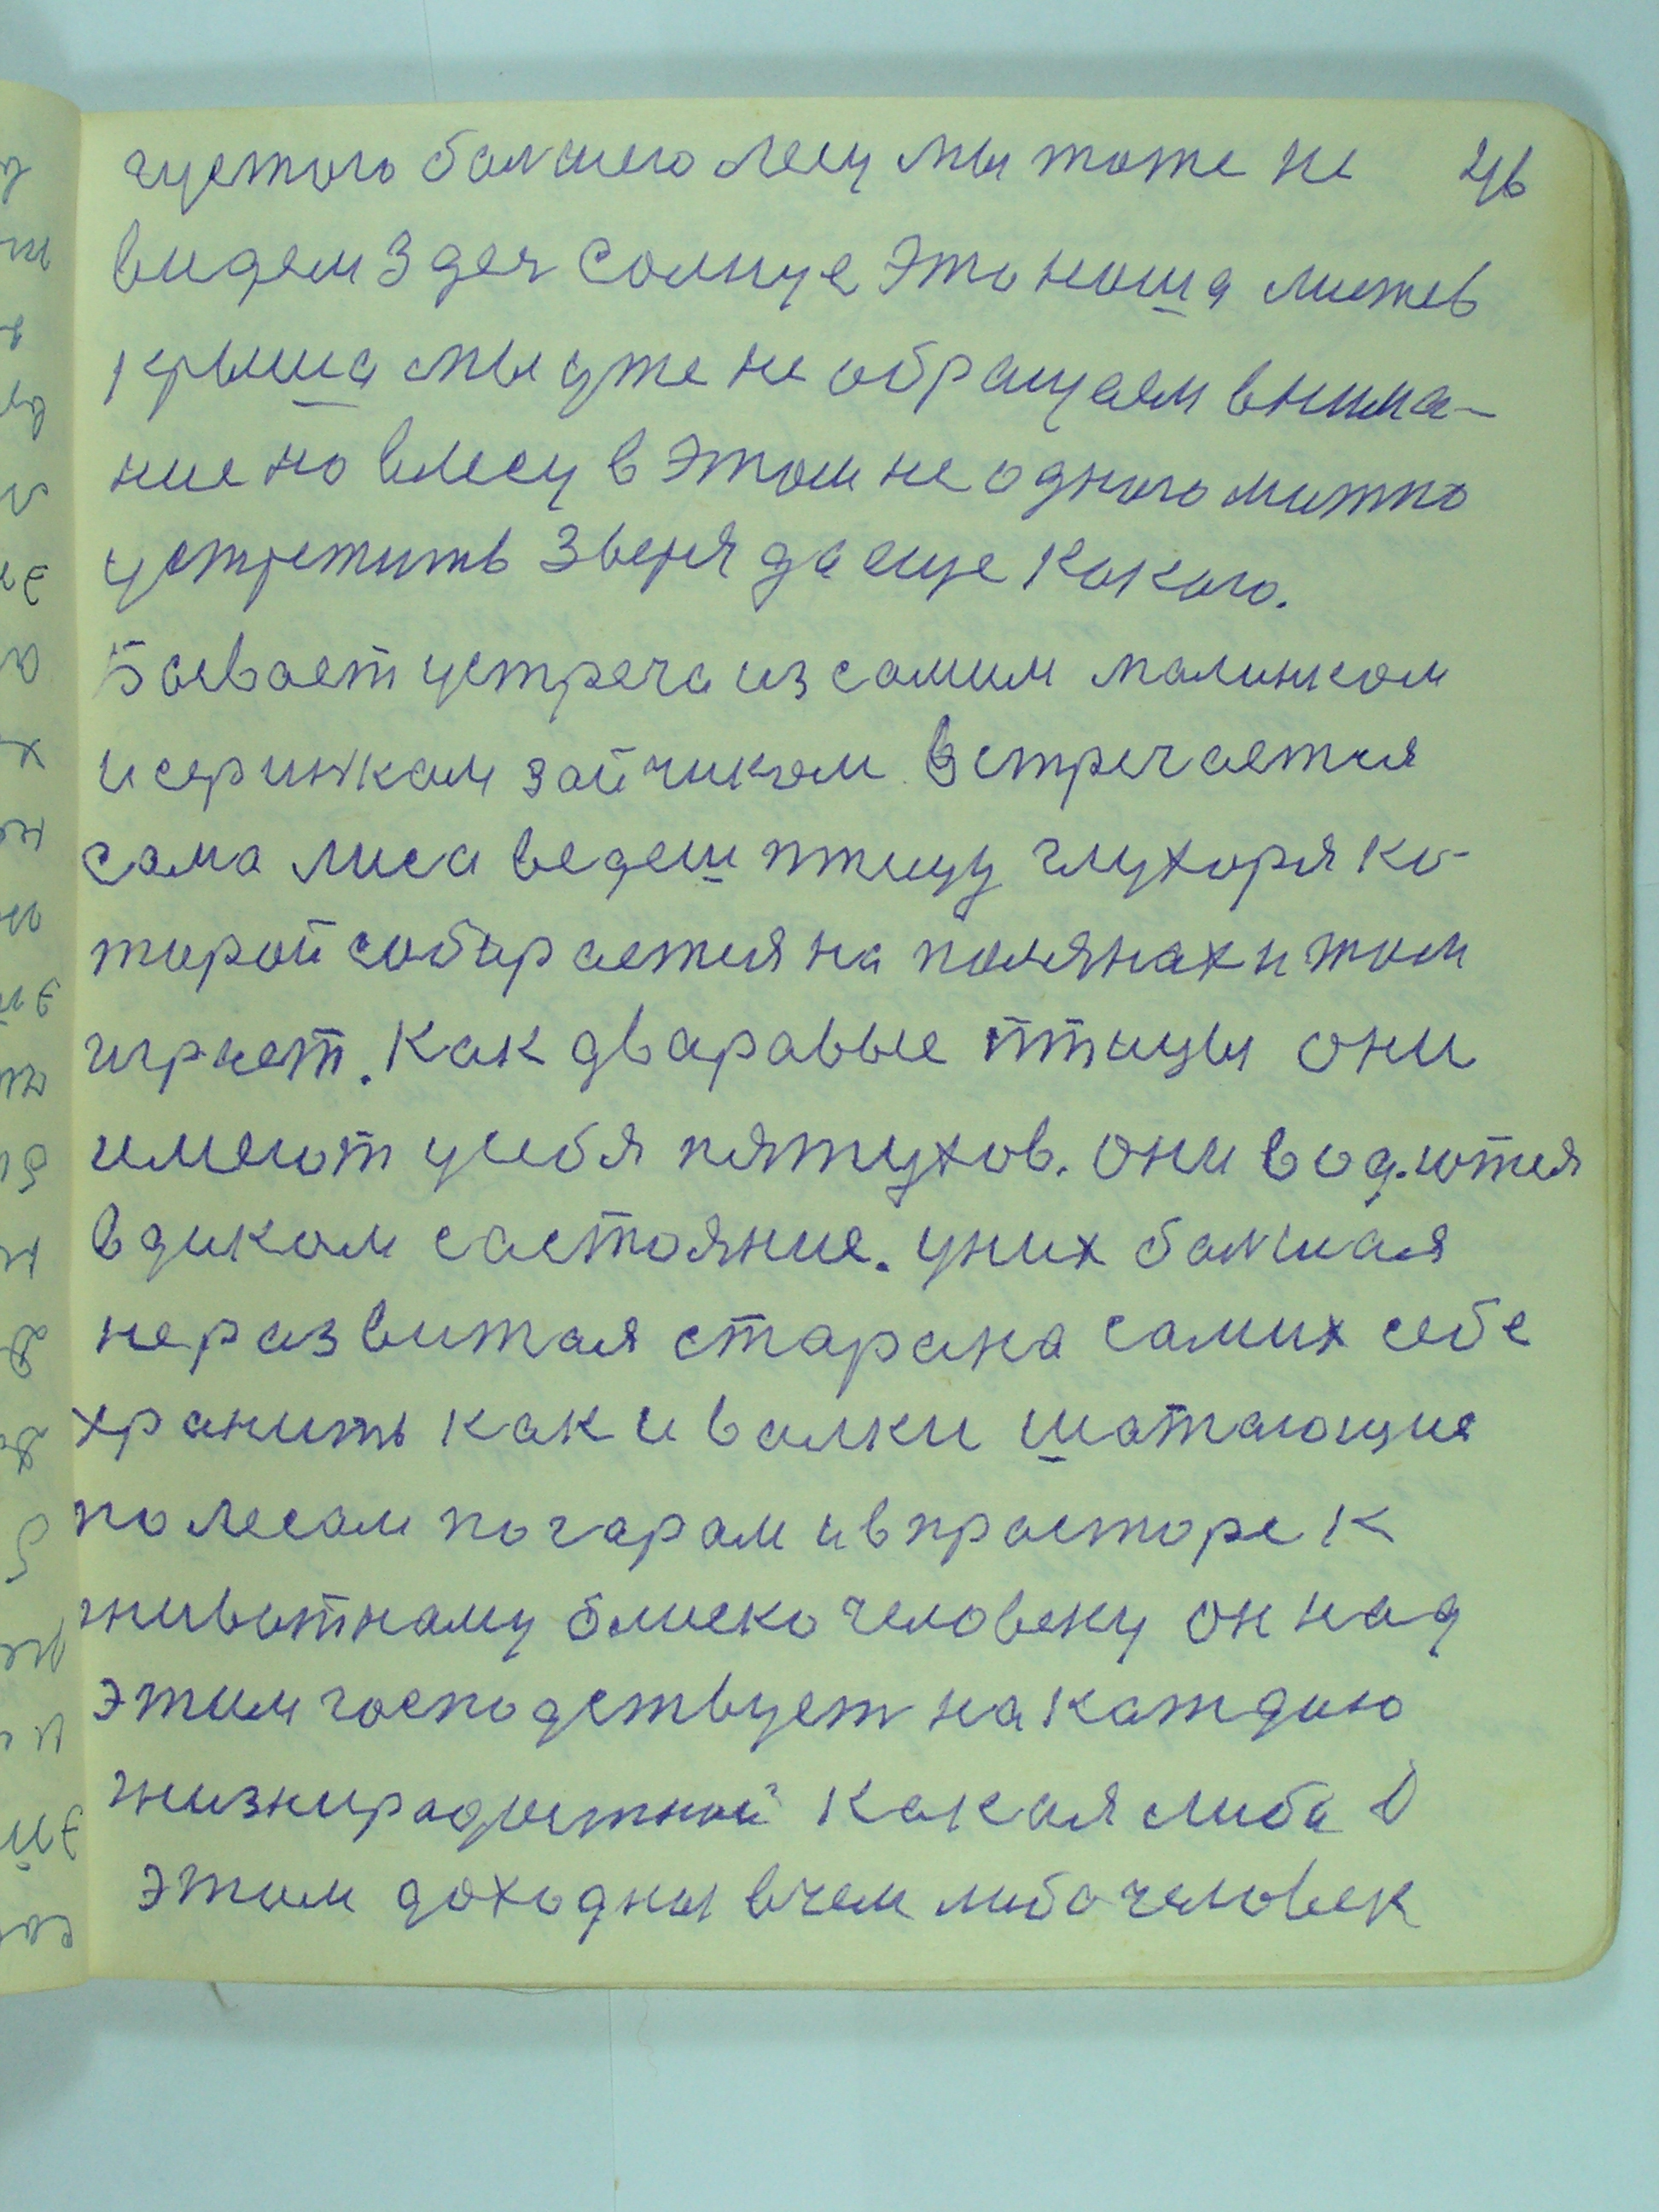 густого болшего лесу мы тоже не 46
видем здес солнце это наша лижеб
крыша мы уже не обращаем внима-
ние но влесу в этом не одного можно
устретить зверя да еще какого.
Бывает устреча из самим малинком
и серинкам зайчиком встречается
сама лиса ведеш птицу глухоря ко-
торой собирается на полянах и там
играет. Как дваравые птицы они
имеют усебя пятухов. они водются
вдиком састояние. уних болшая
неразвитая старана самих себе
хранить как и валки шатающие
по лесам по гарам ивпросторе к
животнаму блиско человеку он над
этим господствует на каждою
жизнирадостной какая либа
этом доходны вчем либо человек